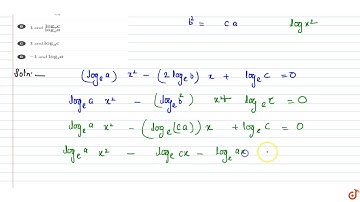 b² = ca log x²
B 1 and log_e c / log_e a
C 1 and log_a c
D -1 and log_c a
Soln: — (log_e a) x² - (2 log_e b) x + log_e c = 0
log_e a x² - (log_e b²) x + log_e c = 0
log_e a x² - (log_e (ca)) x + log_e c = 0
log_e a x² - log_e cx - log_e ax